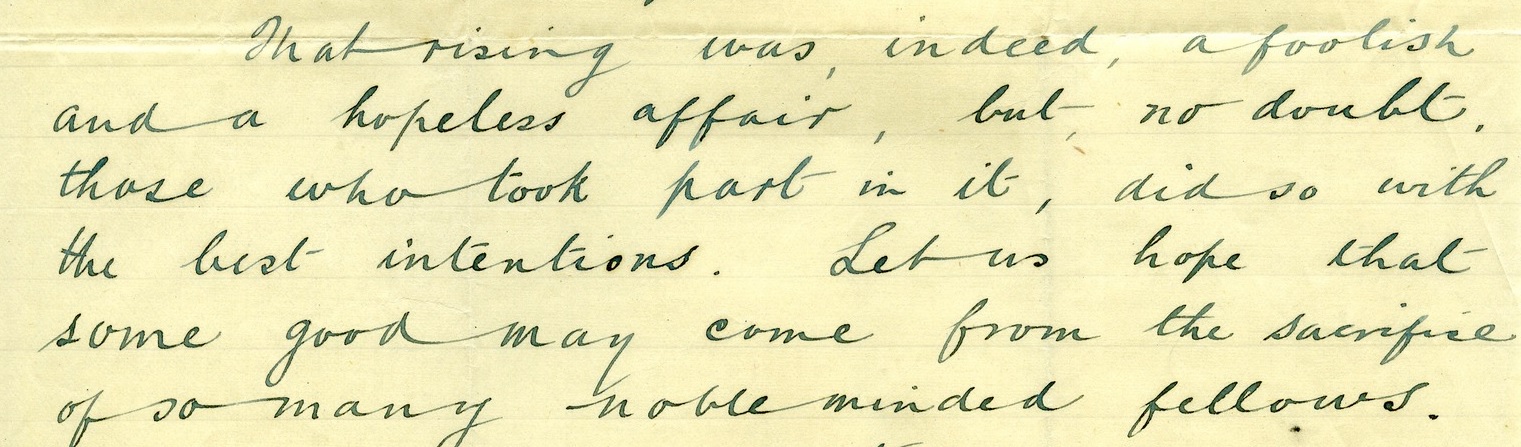 That rising was, indeed, a foolish
and a hopeless affair, but, no doubt,
those who took part in it, did so with
the best intentions. Let us hope that
some good may come from the sacrifice
of so many noble minded fellows.